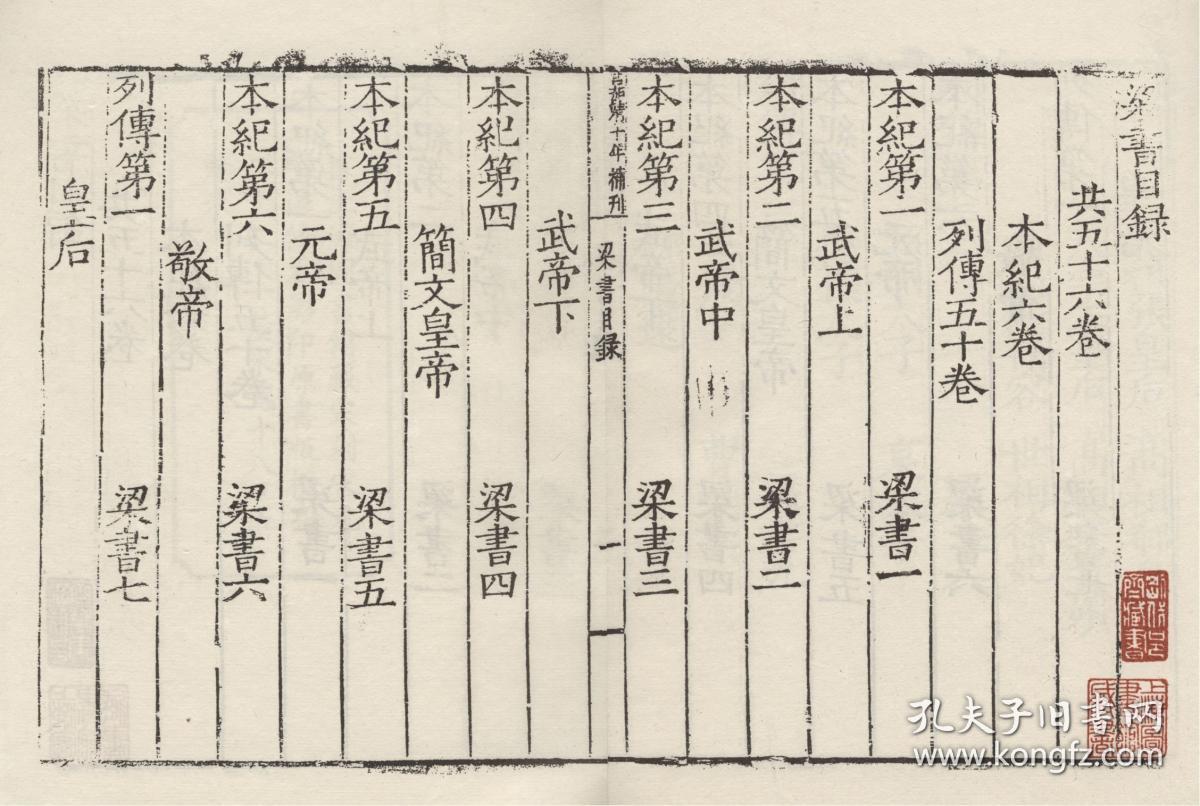 梁書目録
共五十六卷
本紀六卷
列傳五十卷
本紀第一 梁書一
武帝上
本紀第二 梁書二
武帝中
本紀第三 梁書三
嘉靖十年補刊 梁書目録 一
武帝下
本紀第四 梁書四
簡文皇帝
本紀第五 梁書五
元帝
本紀第六 梁書六
敬帝
列傳第一 梁書七
皇后
孔夫子旧书网
www.kongfz.com